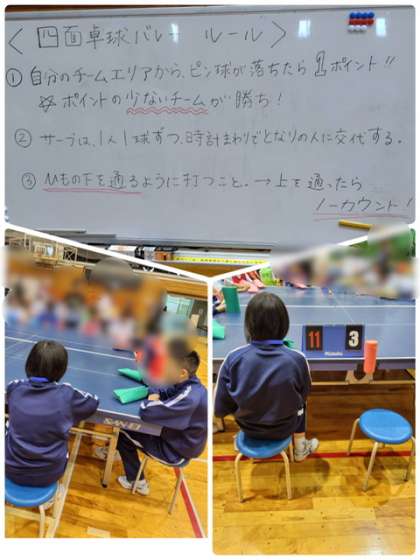 ＜四面卓球バレー ルール＞
①自分のチームエリアから、ピン球が落ちたら1ポイント!!
ポイントの少ないチームが勝ち!
②サーブは、1人1球ずつ、時計まわりでとなりの人に交代する。
③ひもの下を通るように打つこと。→上を通ったら
ノーカウント!
SAN-EI
11 3